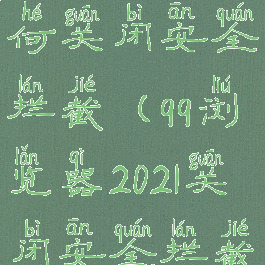 hé guān bì ān quán
何关闭安全
lán jié liú
拦截（qq浏
lǎn qì guān
览器2021关
bì ān quán lán jié
闭安全拦截